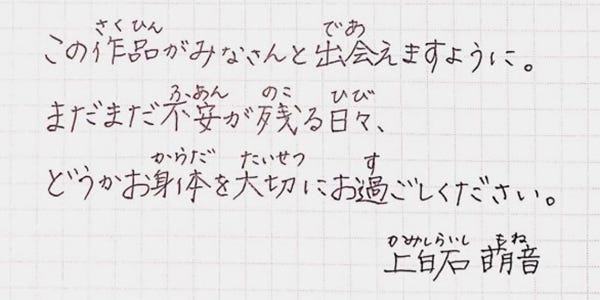 さくひん であ
この作品がみなさんと出会えますように。
ふあん のこ ひび
まだまだ不安が残る日々、
からだ たいせつ す
どうかお身体を大切にお過ごしください。
かみしらいし もね
上白石 萌音